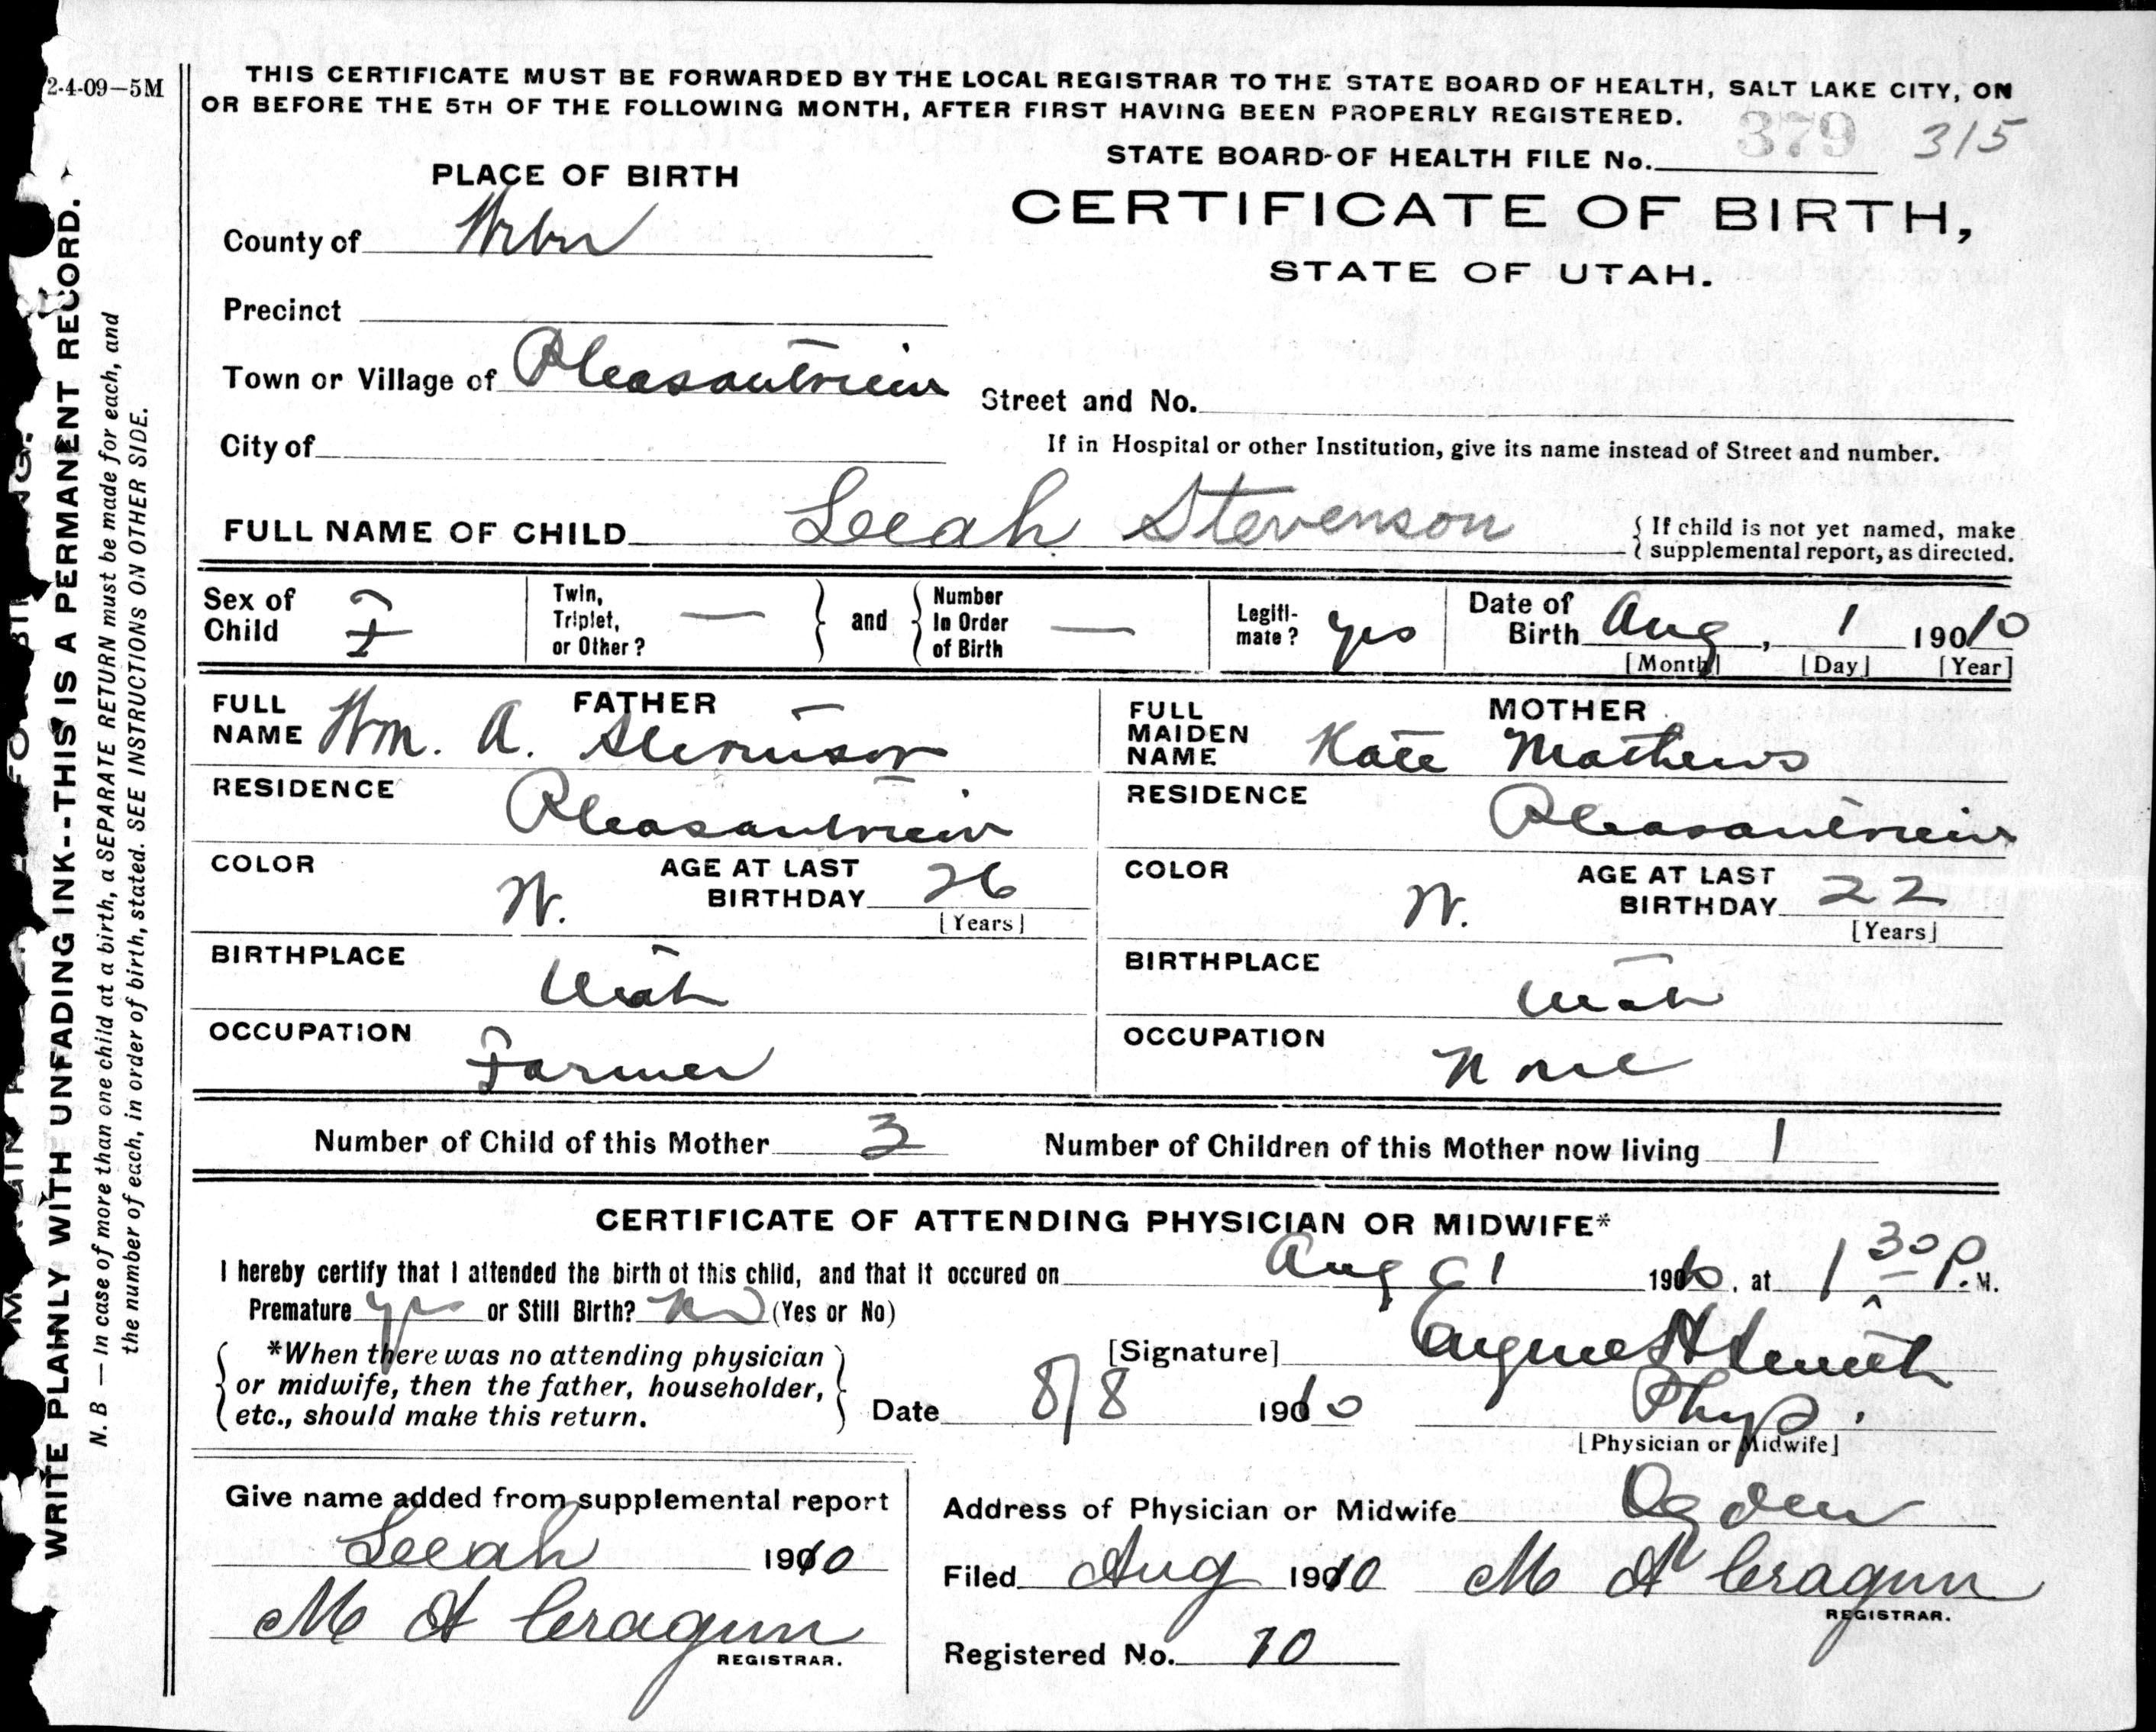 2-4-09—5M
THIS CERTIFICATE MUST BE FORWARDED BY THE LOCAL REGISTRAR TO THE STATE BOARD OF HEALTH, SALT LAKE CITY, ON
OR BEFORE THE 5TH OF THE FOLLOWING MONTH, AFTER FIRST HAVING BEEN PROPERLY REGISTERED.
379 315
STATE BOARD OF HEALTH FILE No.
PLACE OF BIRTH
CERTIFICATE OF BIRTH,
STATE OF UTAH.
County of Weber
Precinct
Town or Village of Pleasantview
Street and No.
City of
If in Hospital or other Institution, give its name instead of Street and number.
FULL NAME OF CHILD Leeah Stevenson
{ If child is not yet named, make
supplemental report, as directed.
Sex of Child F
Twin, Triplet, or Other? —
and
Number In Order of Birth —
Legiti-mate? yes
Date of Birth Aug, 1 19010
[Month] [Day] [Year]
FATHER
FULL NAME Wm. A. Stevenson
RESIDENCE Pleasantview
COLOR W. AGE AT LAST BIRTHDAY 26
[Years]
BIRTHPLACE Utah
OCCUPATION Farmer
MOTHER
FULL MAIDEN NAME Kate Mathews
RESIDENCE Pleasantview
COLOR W. AGE AT LAST BIRTHDAY 22
[Years]
BIRTHPLACE Utah
OCCUPATION None
Number of Child of this Mother 3 Number of Children of this Mother now living 1
CERTIFICATE OF ATTENDING PHYSICIAN OR MIDWIFE*
I hereby certify that I attended the birth of this child, and that it occured on Aug 1 1910, at 1 30 P.M.
Premature yes or Still Birth? No (Yes or No)
*When there was no attending physician
or midwife, then the father, householder,
etc., should make this return.
[Signature] Eugene H Smith
Date 8/8 1910 Phys.
[Physician or Midwife]
Give name added from supplemental report
Leeah 1910
M A Cragun
REGISTRAR.
Address of Physician or Midwife Ogden
Filed Aug 1910 M A Cragun
REGISTRAR.
Registered No. 10
WRITE PLAINLY WITH UNFADING INK--THIS IS A PERMANENT RECORD.
N. B — In case of more than one child at a birth, a SEPARATE RETURN must be made for each, and
the number of each, in order of birth, stated. SEE INSTRUCTIONS ON OTHER SIDE.